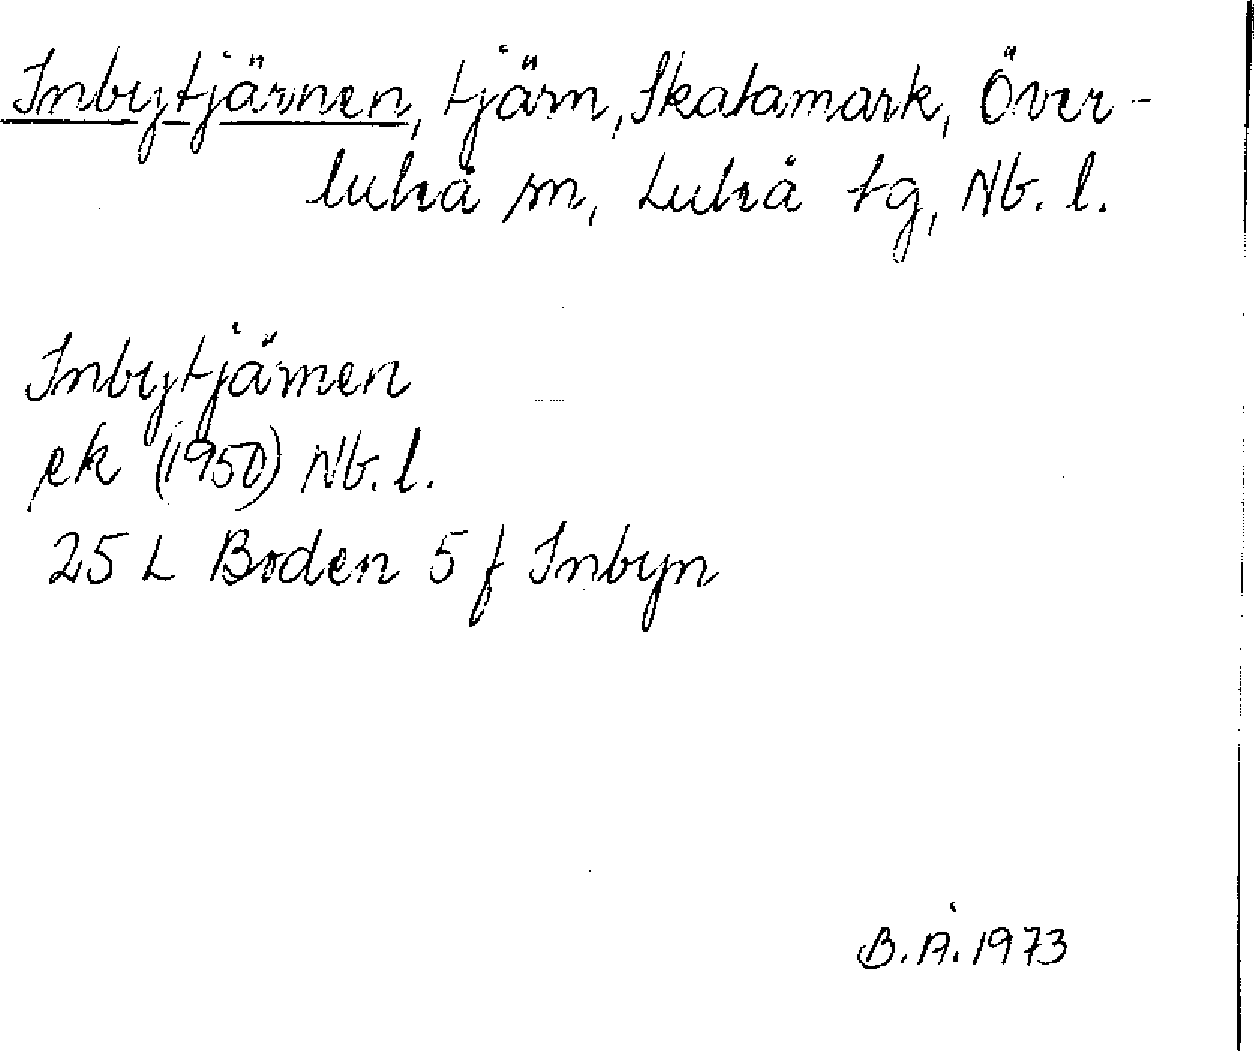 Inbytjärnen, tjärn, Skatamark, Över-
luleå sn, Luleå tg, Nb. l.
Inbytjärnen
ek (1950) Nb. l.
25 L Boden 5 f Inbyn
B. Å. 1973